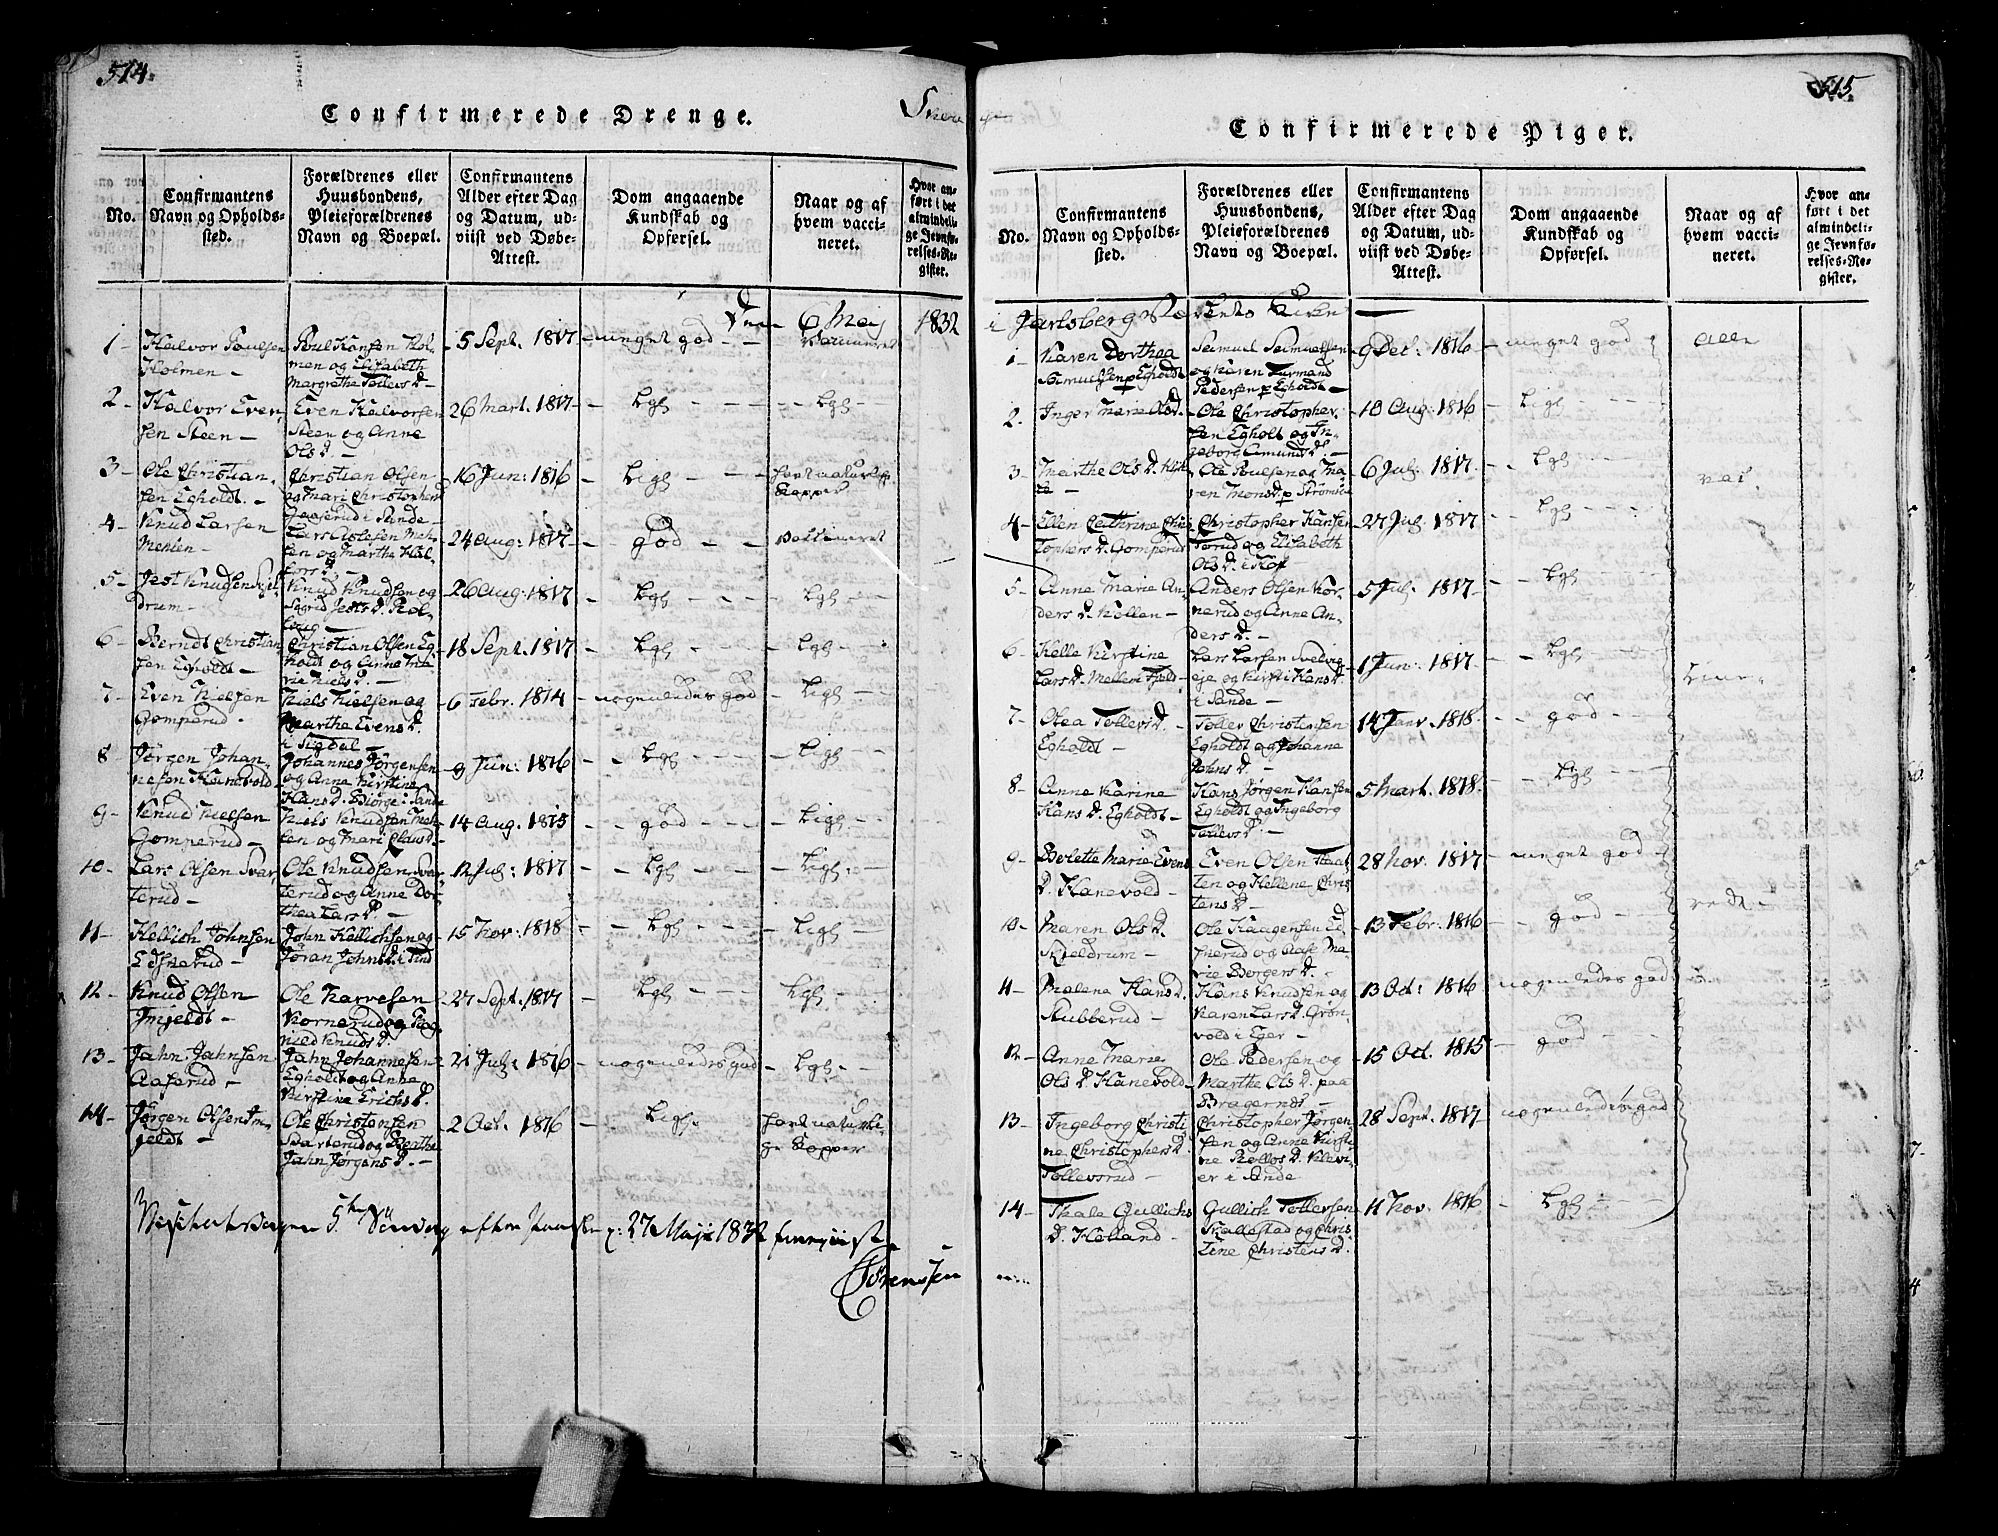 514.
Confirmerede Drenge.
No.
Confirmantens
Navn og Opholds-
sted.
Forældrenes eller
Huusbondens,
Pleieforældrenes
Navn og Boepæl.
Confirmantens
Alder efter Dag
og Datum, ud-
viist ved Døbe-
Attest.
Dom angaaende
Kundskab og
Opførsel.
Naar og af
hvem vacci-
neret.
Hvor an-
ført i det
almindeli-
ge Jevnfø-
relses-Re-
gister.
6 Maij 1832
1- Halvor Poulsen
Holmen -
Poul Hansen Hol-
men og Elisabeth
Margrethe Tollevs D. -
5 Sept. 1817
meget god
Vaccineret
2- Halvor Even-
sen Steen -
Even Halvorsen
Steen og Anne
Ols D. -
26 Mart. 1817
Ligl
Ligl
3- Ole Christian-
sen Egholdt. -
Christian Olsen
og Mari Christophers
Aaserud i Sande -
16 Jun: 1816
Ligl
havt naturlige
Kopper
4- Knud Larsen
Lars
og Marthe
24 Aug: 1817
god
Vaccineret
5- Jest Knudsen
drum -
Knud Knudsen og
Sigrid Jests D.
26 Aug: 1817
Ligl
Ligl
6- Berndt Christian-
sen Egholdt -
Christian Olsen Eg-
holdt og Anne Ma-
rie Niels D. -
18 Sept. 1817
Ligl
Ligl
7- Even Nielsen
Gomperud -
Niels Nielsen og
Marthe Evens D.
i Sigdal -
6 Febr. 1814
nogenledes god
Ligl
8 Jørgen Johan-
nesen Hanevold -
Johannes Jørgensen
og Anne Kirstine
Hans D. Børge i Sande
9 Jun: 1816
Ligl
Ligl
9- Knud Nielsen
Gomperud -
Niels Knudsen
og Mari Claus D. -
14 Aug. 1815
god
Ligl
10- Lars Olsen Svar-
terud -
Ole Knudsen Svar-
terud og Anne Dor-
thea Lars D. -
12 Jul: 1817
Ligl
Ligl
11- Hellich Johnsen
Edsnerud -
John Hellichsen og
Jøran Johns D. i Tind
15 Nov: 1818
Ligl
Ligl
12- Knud Olsen
Imjeldt -
Ole Narvesen
Kornerud og Rag-
nild Knuds D.
27 Sept. 1817
Ligl
Ligl
13- Jahn Jahnsen
Aaserud -
Jahn Johannesen
Egholdt og Anne
Kirstine Erichs D.
21 Jul: 1816
nogenledes god
Ligl
14- Jørgen Olsen Im-
jeldt -
Ole Christensen
Svarterud og Berthe
Jahn Jørgens D. -
2 Oct. 1816
Ligl
havt naturli-
ge Kopper
5te Søndag efter Paaske 27 Maji 1832
Sørenssen
515.
Confirmerede Piger.
No.
Confirmantens
Navn og Opholds-
sted.
Forældrenes eller
Huusbondens,
Pleieforældrenes
Navn og Boepæl.
Confirmantens
Alder efter Dag
og Datum, ud-
viist ved Døbe-
Attest.
Dom angaaende
Kundskab og
Opførsel.
Naar og af
hvem vacci-
neret.
Hvor an-
ført i det
almindeli-
ge Jevnfø-
relses-Re-
gister.
i Jarlsberg
1- Karen Dorthea
Samuelsen p Egholdt
Samuel Samuelsen
og Karen
Pedersen p Egholdt -
9 Dec: 1816
meget god
alle
2. Inger Marie Ols D.
Ole Christopher-
sen Egholt og In-
geborg Amunds D. -
10 Aug: 1816
Ligl
3 Marthe Ols D.
Ole Poulsen og Ma-
ren Mons D. p Strømsøe
6 Jul: 1817
Ligl
4- Ellen Cathrine Chris-
tophers D. Gomperud
Christopher Hansen
og Elisabeth
Ols D. i Hof
27 Jul: 1817
Ligl
5- Anne Marie An-
ders D.
Anders Olsen Kor-
nerud og Anne An-
ders D. -
5 Jul: 1817
Ligl
6 Helle Kirstine
Lars D.
Lars Larsen Svelvig-
eje og Kirsti Hans D.
i Sande -
1 Jun: 1817
Ligl
7- Olea Tollevs D.
Egholdt -
Tollev Christensen
Egholdt og Johanne
Johns D. -
14 Janr. 1818
god
8- Anne Karine
Hans D. Egholdt -
Hans Jørgen Hansen
Egholdt og Ingeborg
Tollevs D. -
5 Mart. 1818
Ligl
9- Bolette Marie Evens
D. Hanevold -
Even Olsen
og Hellene Chris-
tens D. -
28 Nov. 1817
meget god
10- Maren Ols D.
Skjeldrum -
Ole Haagensen Ed-
snerud og Aase Ma-
rie Borgers D. -
13 Febr. 1816
god
11- Malene Hans D.
Stubberud -
Hans Knudsen og
Karen Lars D. Grøn-
vold i Eger -
13 Oct: 1816
nogenledes god
12- Anne Marie
Ols D. Hanevold -
Ole Pedersen og
Marthe Ols D. paa
Bragernes -
15 Oct. 1815
god
13- Ingeborg Christi-
ne Christophers D.
Tollevsrud -
Christopher Jørgen-
sen og Anne Kirsti-
ne
i Sande
28 Sept. 1817
nogenledes god
14- Thale Gullichs
D. Holland -
Gullich Tollefsen
Skallestad og Chris-
tine Christens D.
11 Nov. 1816
Ligl